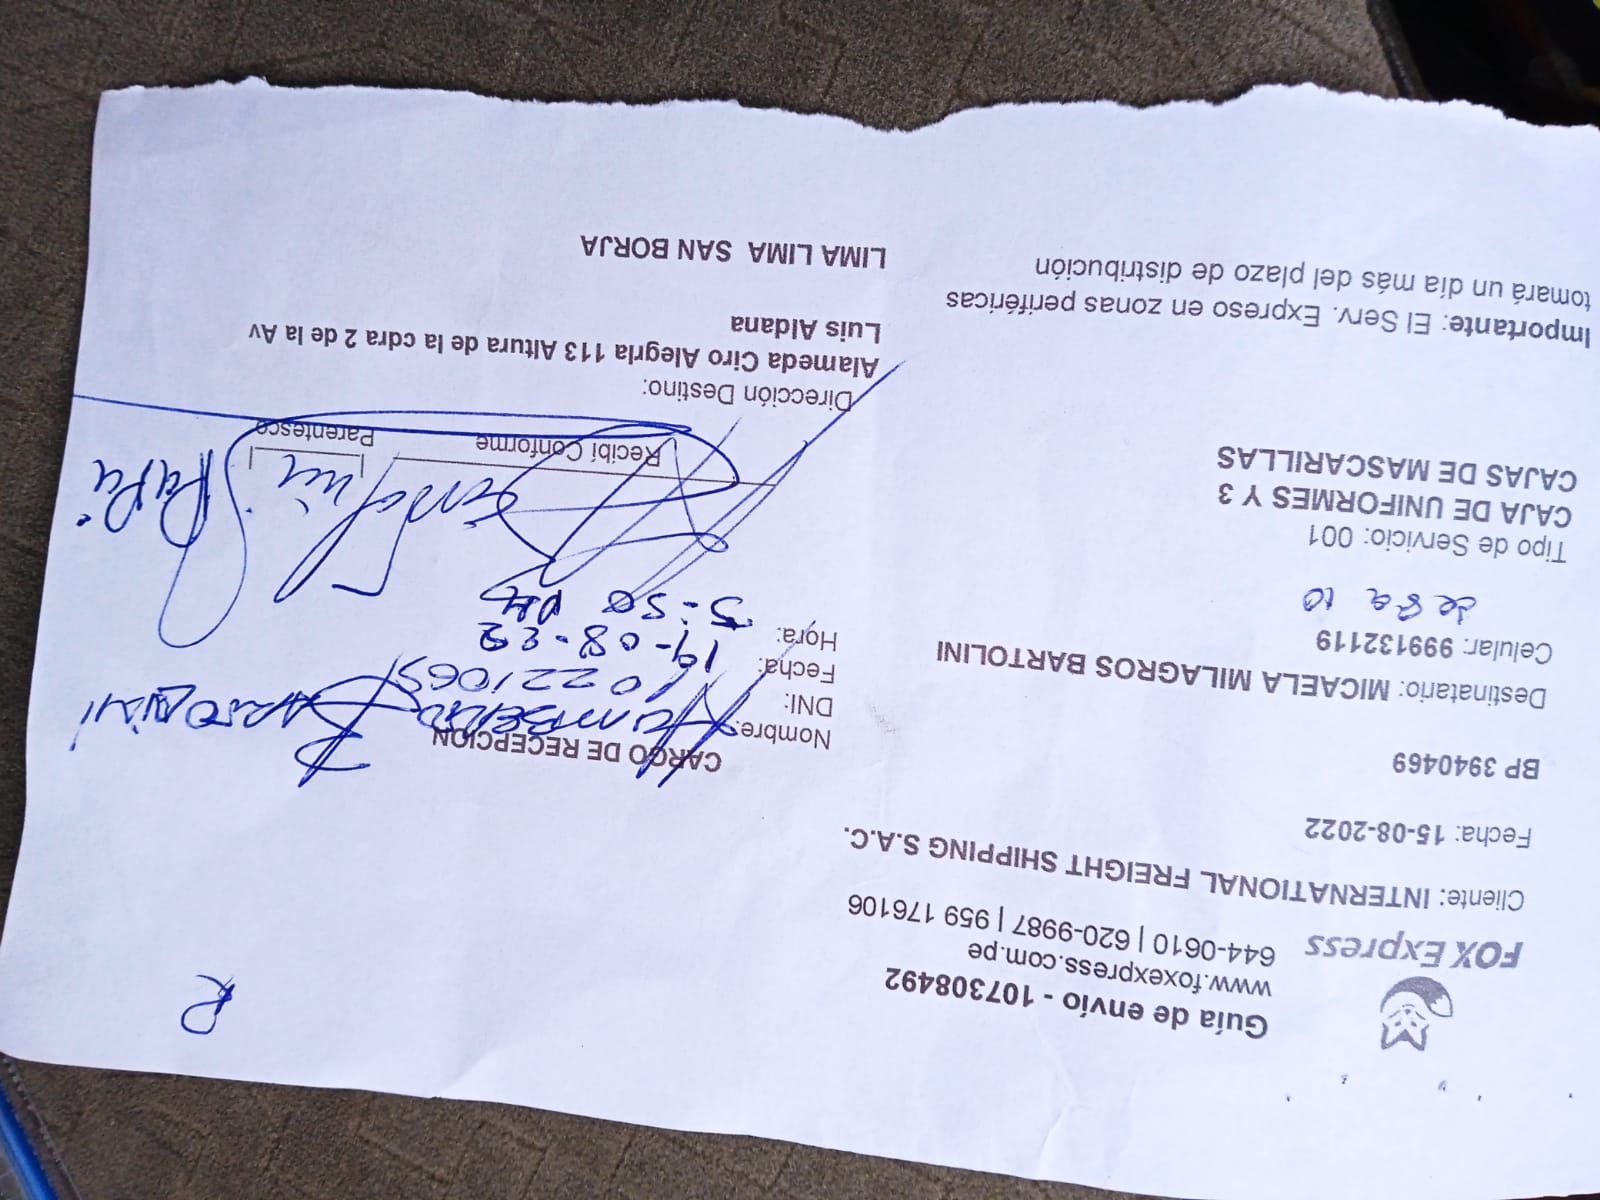 R
Guía de envío - 107308492
www.foxexpress.com.pe
644-0610 | 620-9987 | 959 176106
FOX Express
Cliente: INTERNATIONAL FREIGHT SHIPPING S.A.C.
Fecha: 15-08-2022
BP 3940469
Destinatario: MICAELA MILAGROS BARTOLINI
Celular: 999132119
de 8 a 10
Tipo de Servicio: 001
CAJA DE UNIFORMES Y 3
CAJAS DE MASCARILLAS
Importante: El Serv. Expreso en zonas periféricas
tomará un día más del plazo de distribución
CARGO DE RECEPCION
Nombre: HUMBERTO BARTOLINI
DNI: 10221065
Fecha: 19-08-22
Hora: 3:50 PM
Papá
Recibí Conforme Parentesco
Dirección Destino:
Alameda Ciro Alegría 113 Altura de la cdra 2 de la Av
Luis Aldana
LIMA LIMA SAN BORJA